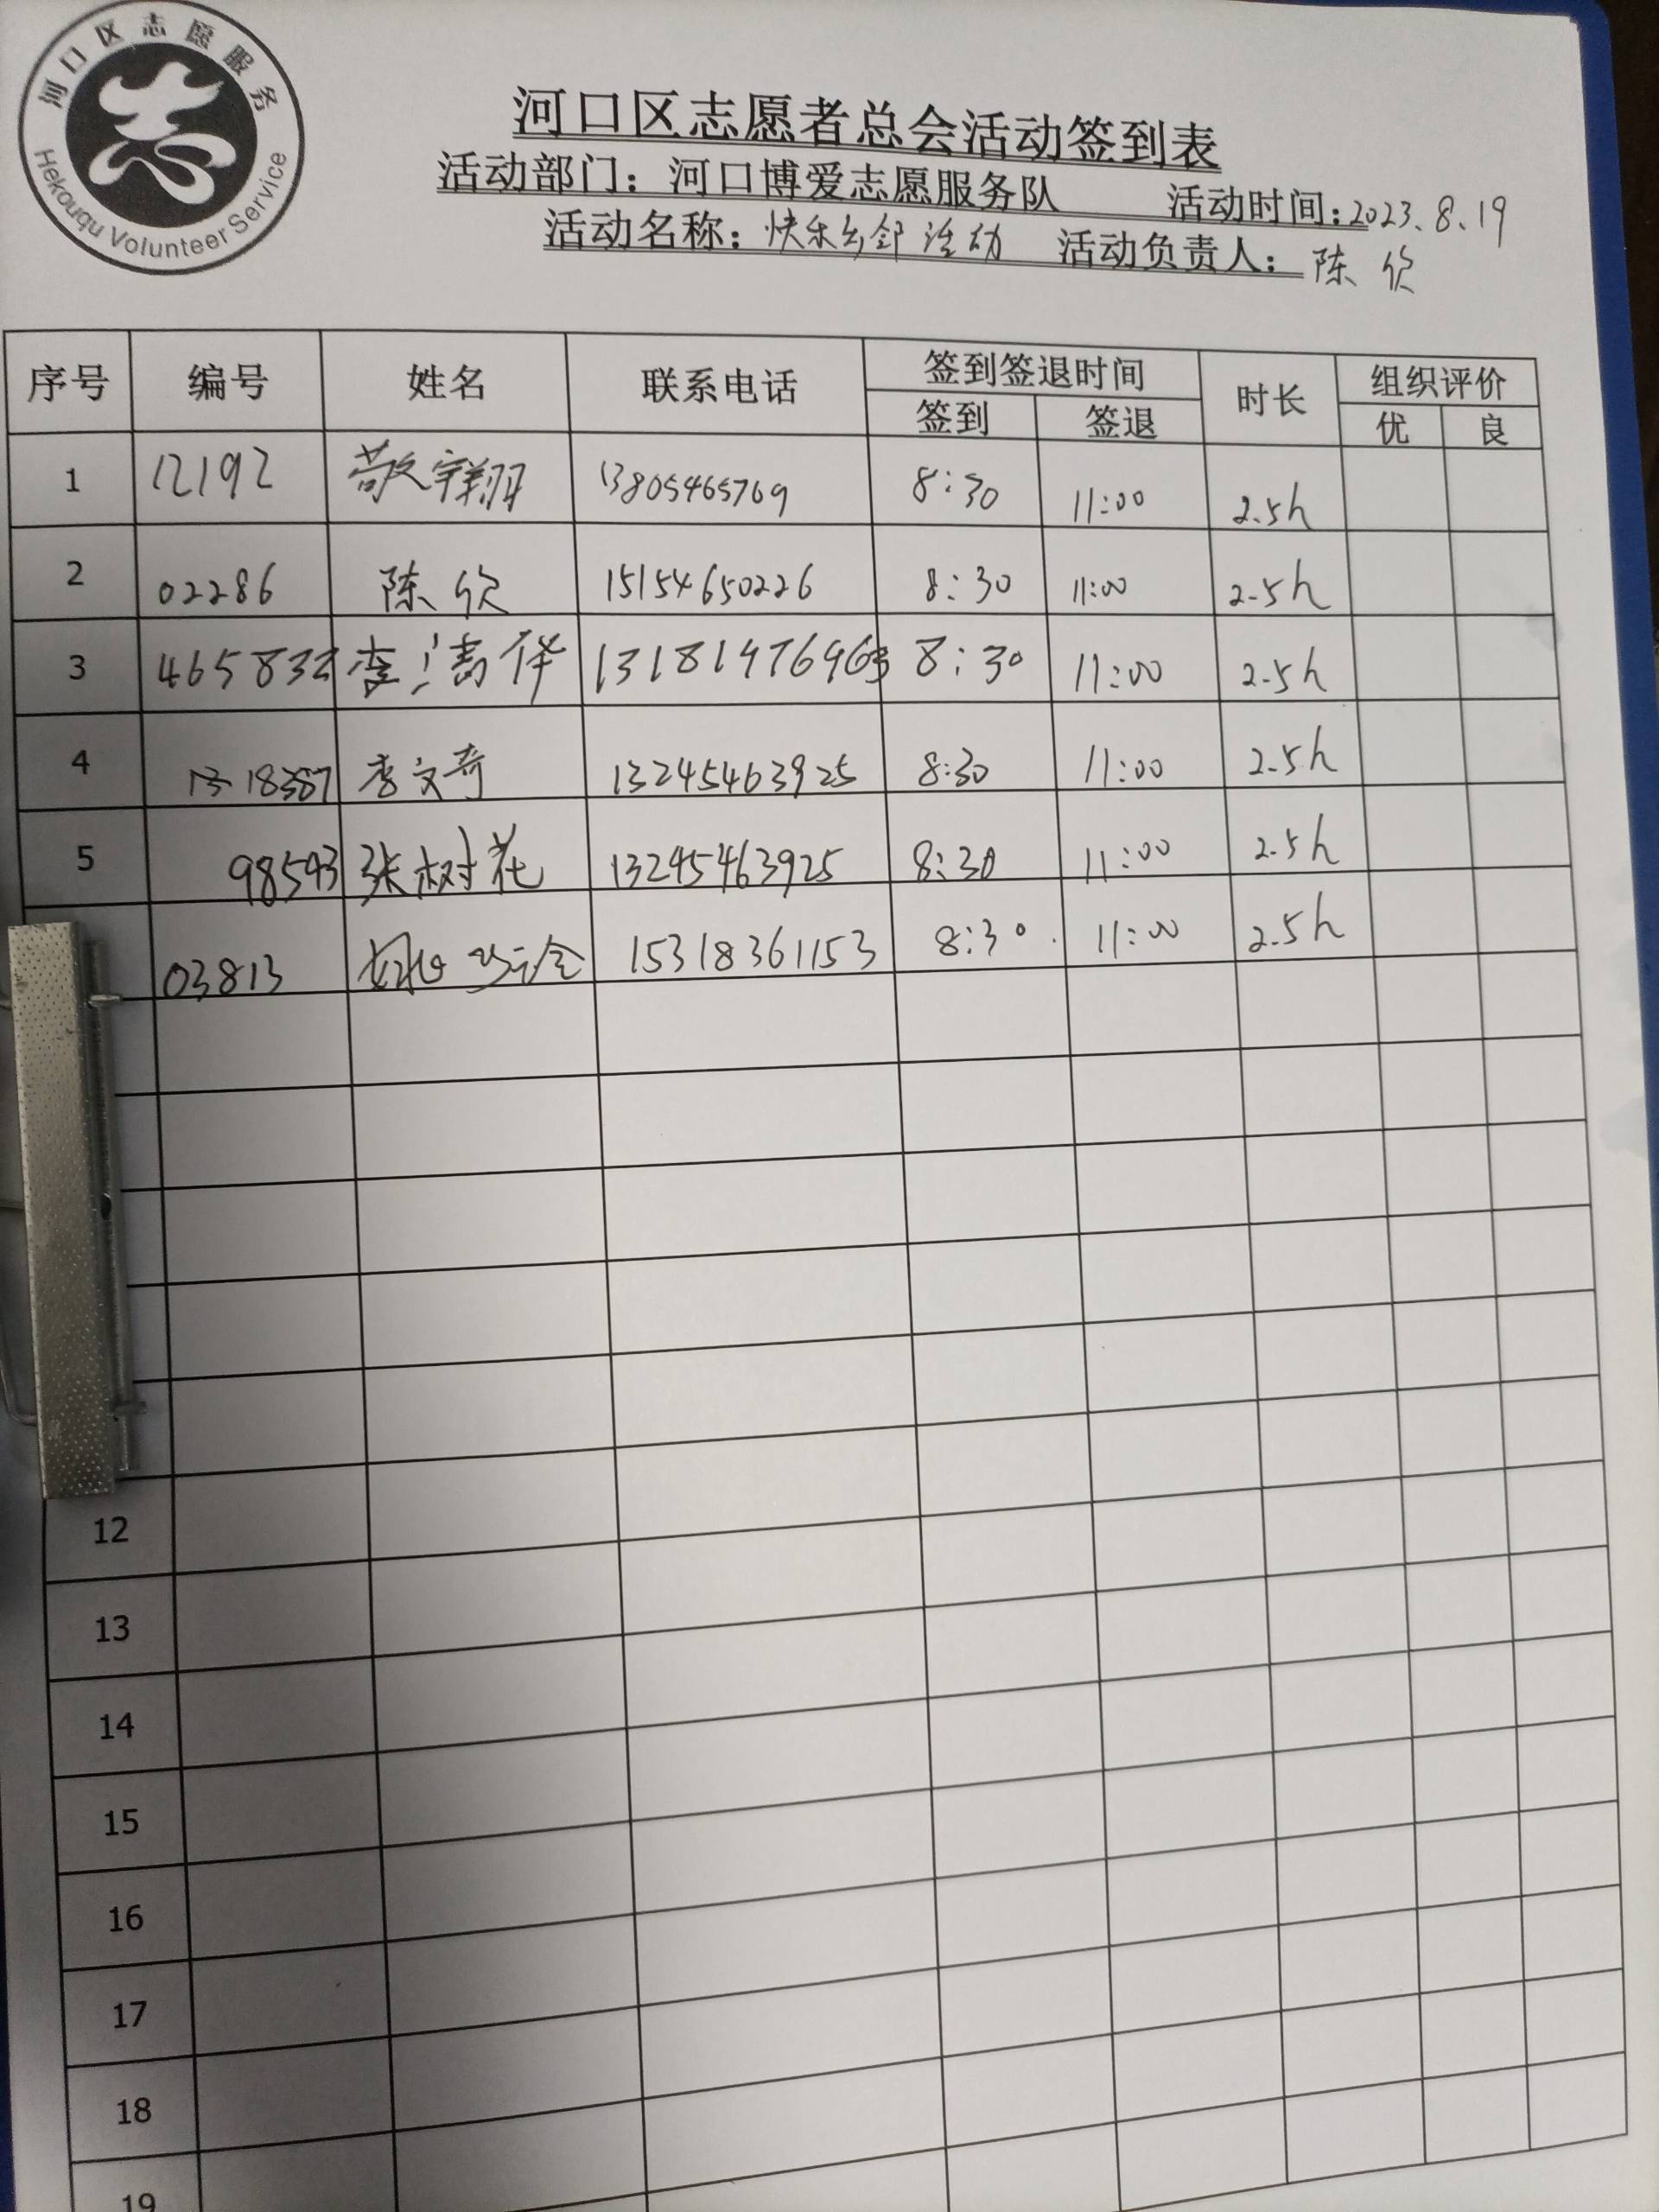 河口区志愿服务
Hekouqu Volunteer Service
河口区志愿者总会活动签到表
活动部门：河口博爱志愿服务队 活动时间：2023.8.19
活动名称：快乐乡邻活动 活动负责人：陈欣
序号 编号 姓名 联系电话 签到签退时间 时长 组织评价
签到 签退 优 良
1 12192 苟文宇翔 13805465769 8:30 11:00 2.5h
2 02286 陈欣 15154650226 8:30 11:00 2.5h
3 李清华 8:30 11:00 2.5h
4 李文奇 13245463925 8:30 11:00 2.5h
5 98543 张树花 13245463925 8:30 11:00 2.5h
03813 15318361153 8:30 11:00 2.5h
12
13
14
15
16
17
18
19